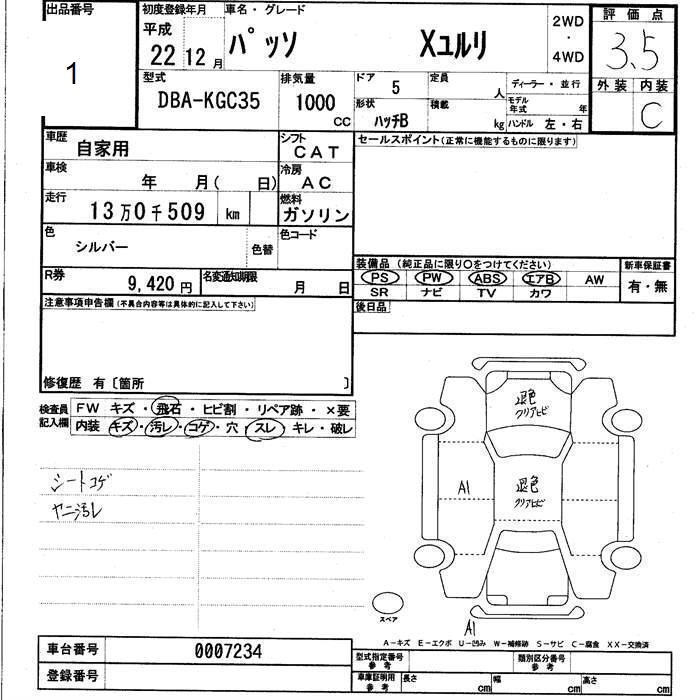 出品番号
1
初度登録年月
平成
22 12 月
車名・グレード
パッソ Xユルリ
2WD
・
4WD
評価点
3.5
外装 内装
C
型式
DBA-KGC35
排気量
1000
CC
ドア 5
定員 人
形状
ハッチB
積載 kg
ディーラー・並行
モデル年式 年
ハンドル 左・右
車歴
自家用
シフト
CAT
車検
年 月( 日)
冷房
AC
走行
13万0千509 km
燃料
ガソリン
色
シルバー
色替
色コード
R券
9,420 円
名変通知期限
月 日
セールスポイント(正常に機能するものに限ります)
装備品 (純正品に限り○をつけてください)
PS PW ABS エアB AW
SR ナビ TV カワ
新車保証書
有・無
後日品
注意事項申告欄(不具合内容等は具体的に記入して下さい)
修復歴 有〔箇所 〕
検査員
記入欄
FW キズ・飛石・ヒビ割・リペア跡・×要
内装 キズ・汚レ・コゲ・穴・スレ・キレ・破レ
シートコゲ
ヤニ汚レ
退色
クリアヒビ
A1
退色
クリアヒビ
スペア
A1
A-キズ E-エクボ U-凹み W-補修跡 S-サビ C-腐食 XX-交換済
車台番号
0007234
登録番号
型式指定番号
参考
類別区分番号
参考
車庫証明用
参考
長さ cm
幅 cm
高さ cm